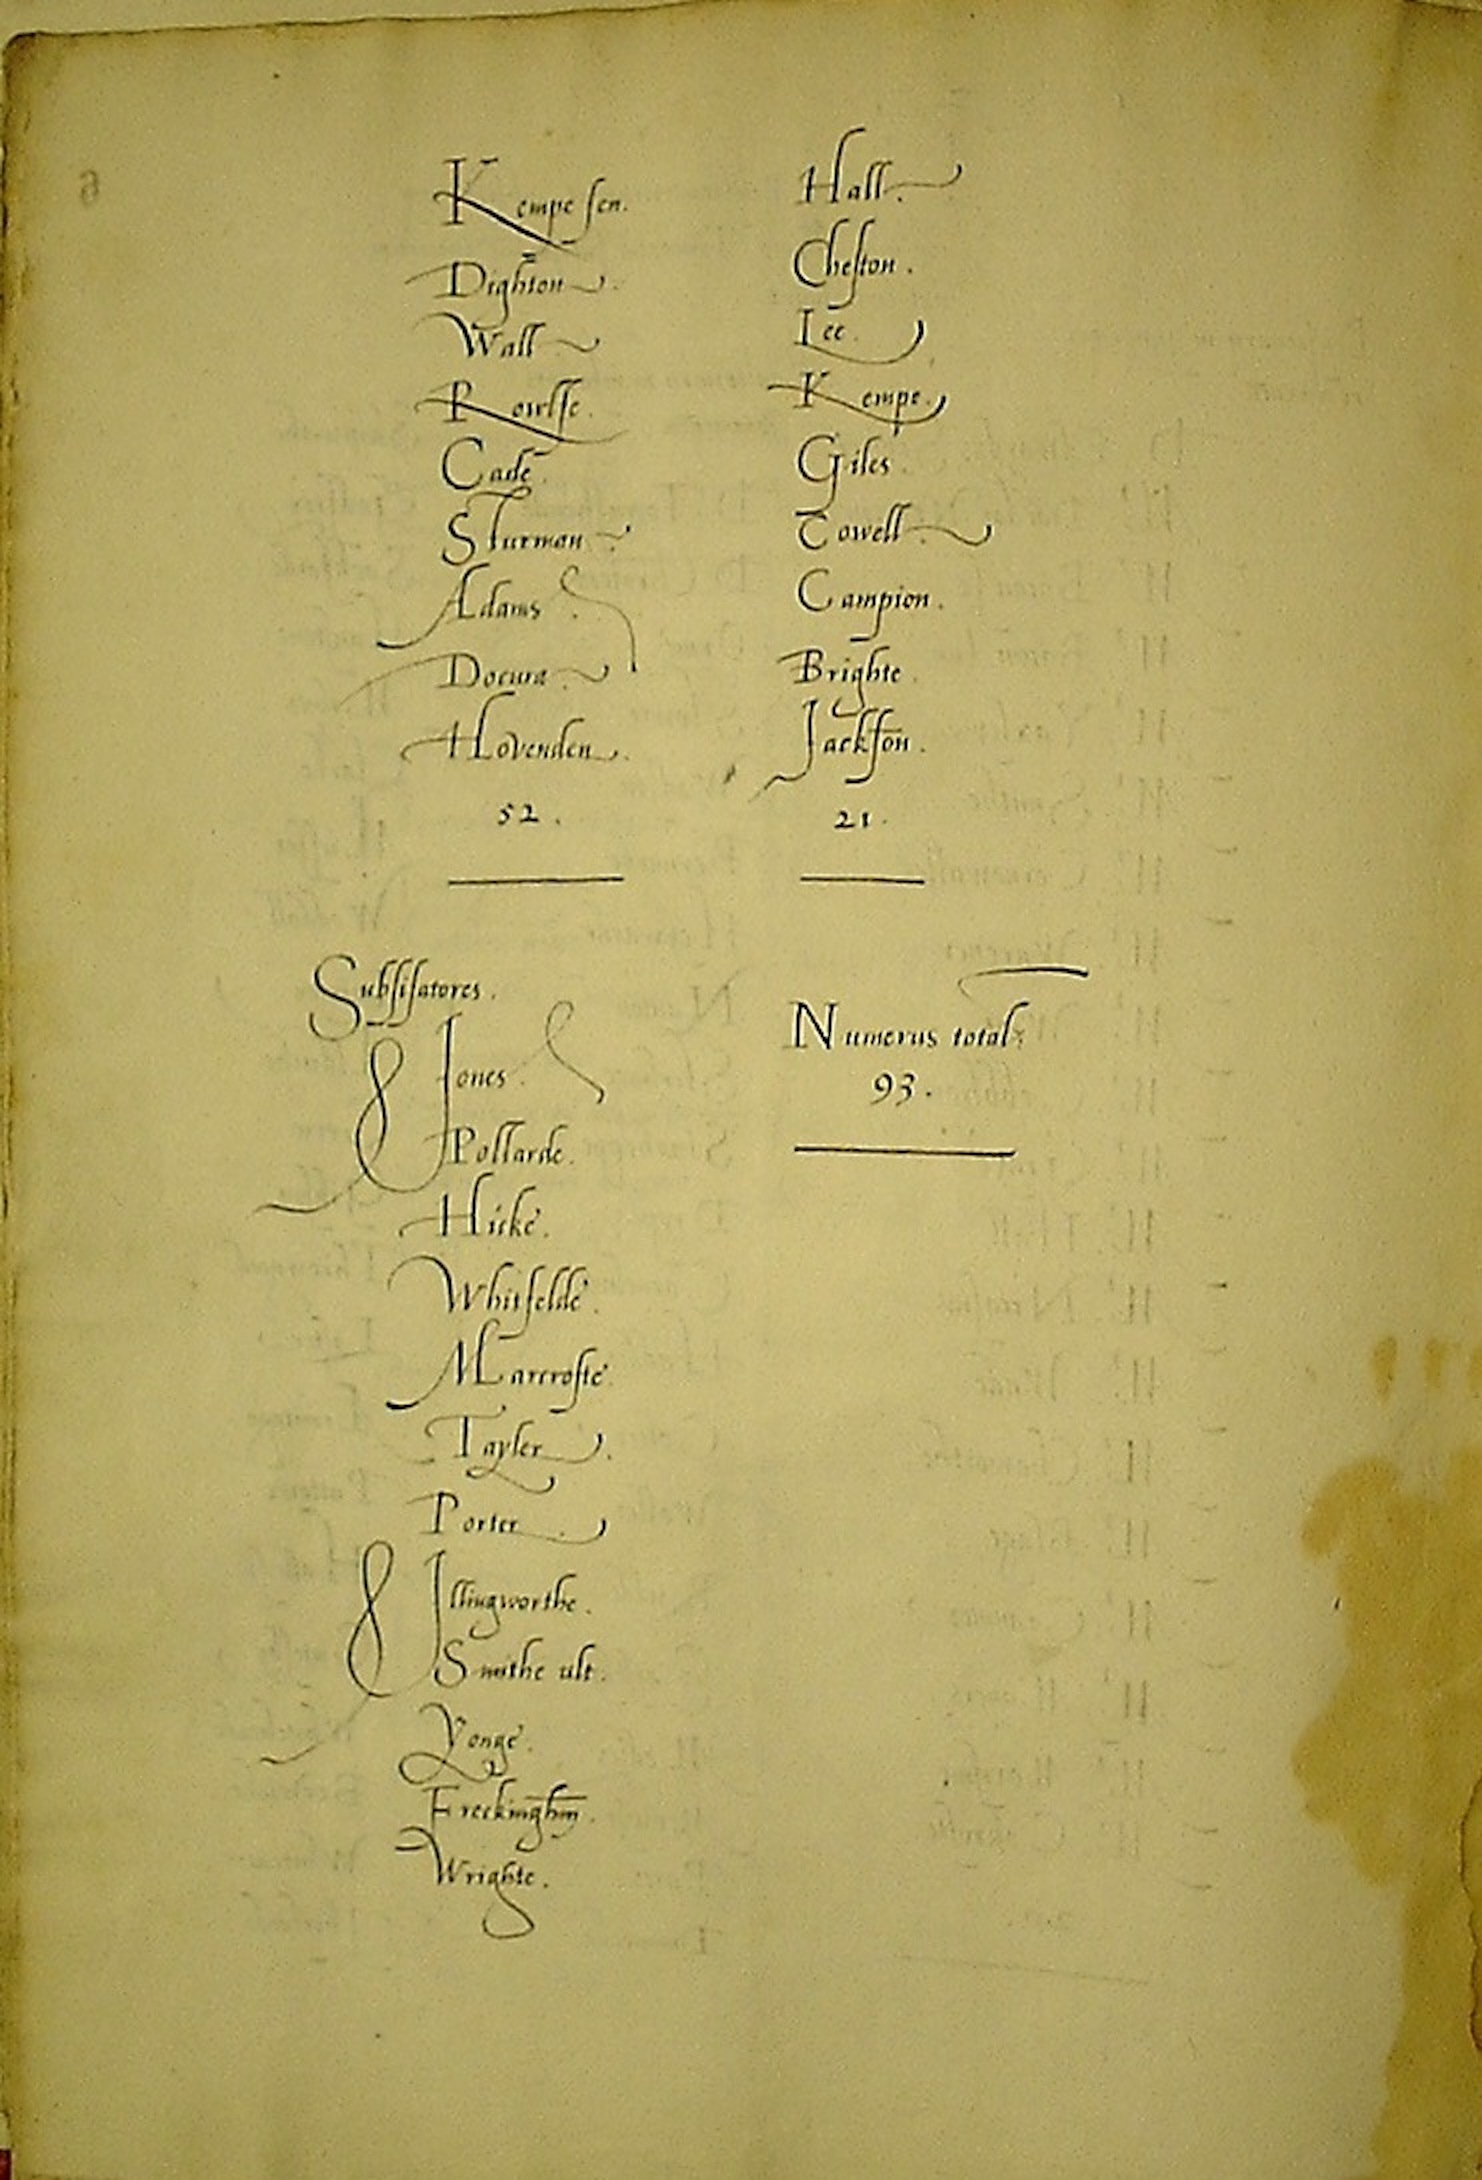 Kempe sen.
Dighton.
Wall
Rowlse.
Cade.
Sturman.
Adams.
Docura.
Hovenden.
52.
Hall.
Cheston.
Lee.
Kempe.
Giles.
Cowell.
Campion.
Brighte.
Jackson.
21.
Subsisatores.
Jones.
Pollarde.
Hicke.
Whitfelde.
Marcrofte.
Tayler.
Porter.
Illingworthe.
Smithe ult.
Yonge.
Freckinghm.
Wrighte.
Numerus total:
93.